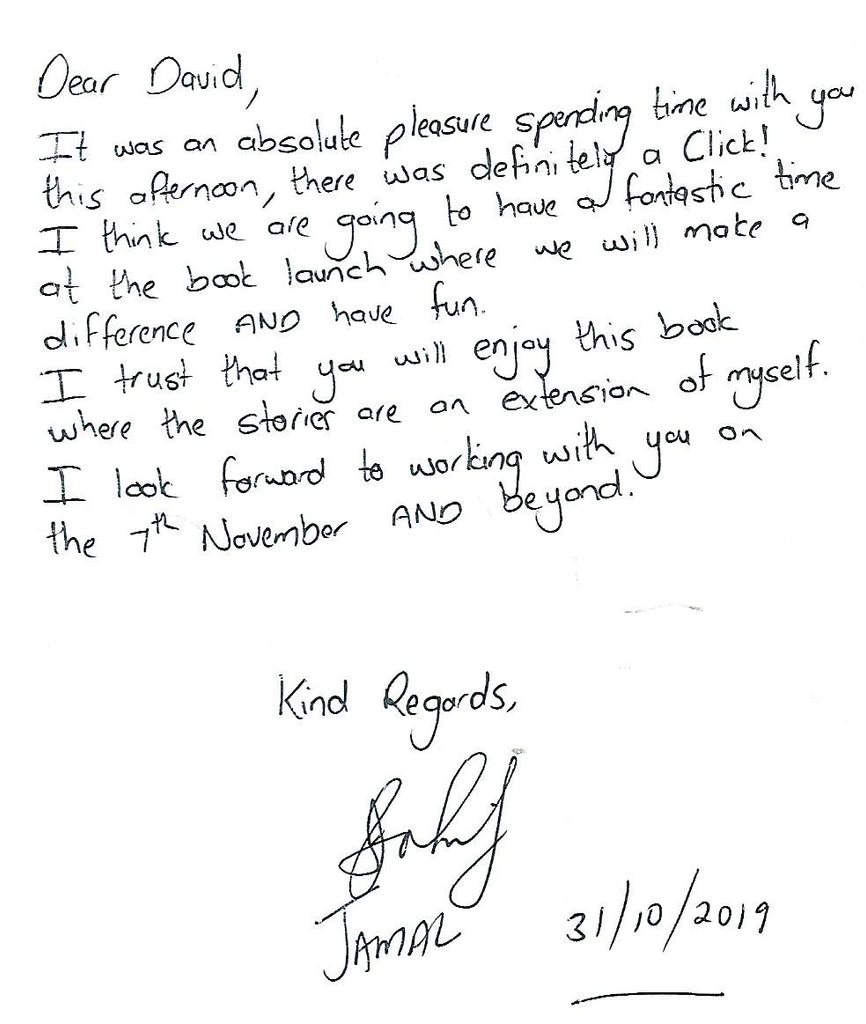 Dear David,
It was an absolute pleasure spending time with you
this afternoon, there was definitely a Click!
I think we are going to have a fantastic time
at the book launch where we will make a
difference AND have fun.
I trust that you will enjoy this book
where the stories are an extension of myself.
I look forward to working with you on
the 7th November AND beyond.
Kind Regards,
JAMAL
31/10/2019